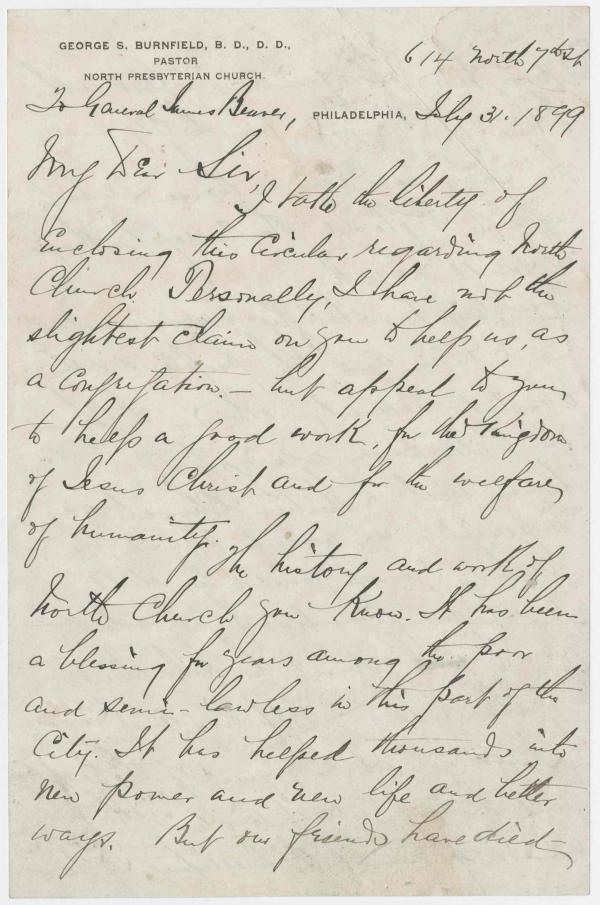 GEORGE S. BURNFIELD, B. D., D. D.,
PASTOR
NORTH PRESBYTERIAN CHURCH.
614 North 7th St
To General James Beaver,
PHILADELPHIA, July 31. 1899
My Dear Sir,
I take the liberty of
enclosing this Circular regarding North
Church. Personally, I have not the
slightest claim on you to help us, as
a congregation. – but appeal to you
to help a good work, for the Kingdom
of Jesus Christ and for the welfare
of humanity.
The history and work of
North Church you know. It has been
a blessing for years among the poor
and semi-lawless in this part of the
City. It has helped thousands into
new power and new life and better
ways. But our friends have died –